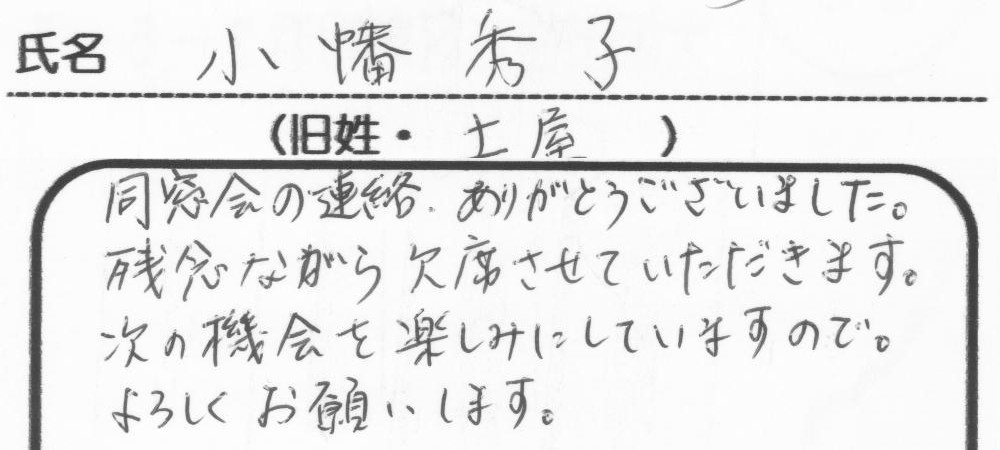 氏名 小幡秀子
(旧姓・土屋)
同窓会の連絡、ありがとうございました。
残念ながら欠席させていただきます。
次の機会を楽しみにしていますので。
よろしくお願いします。